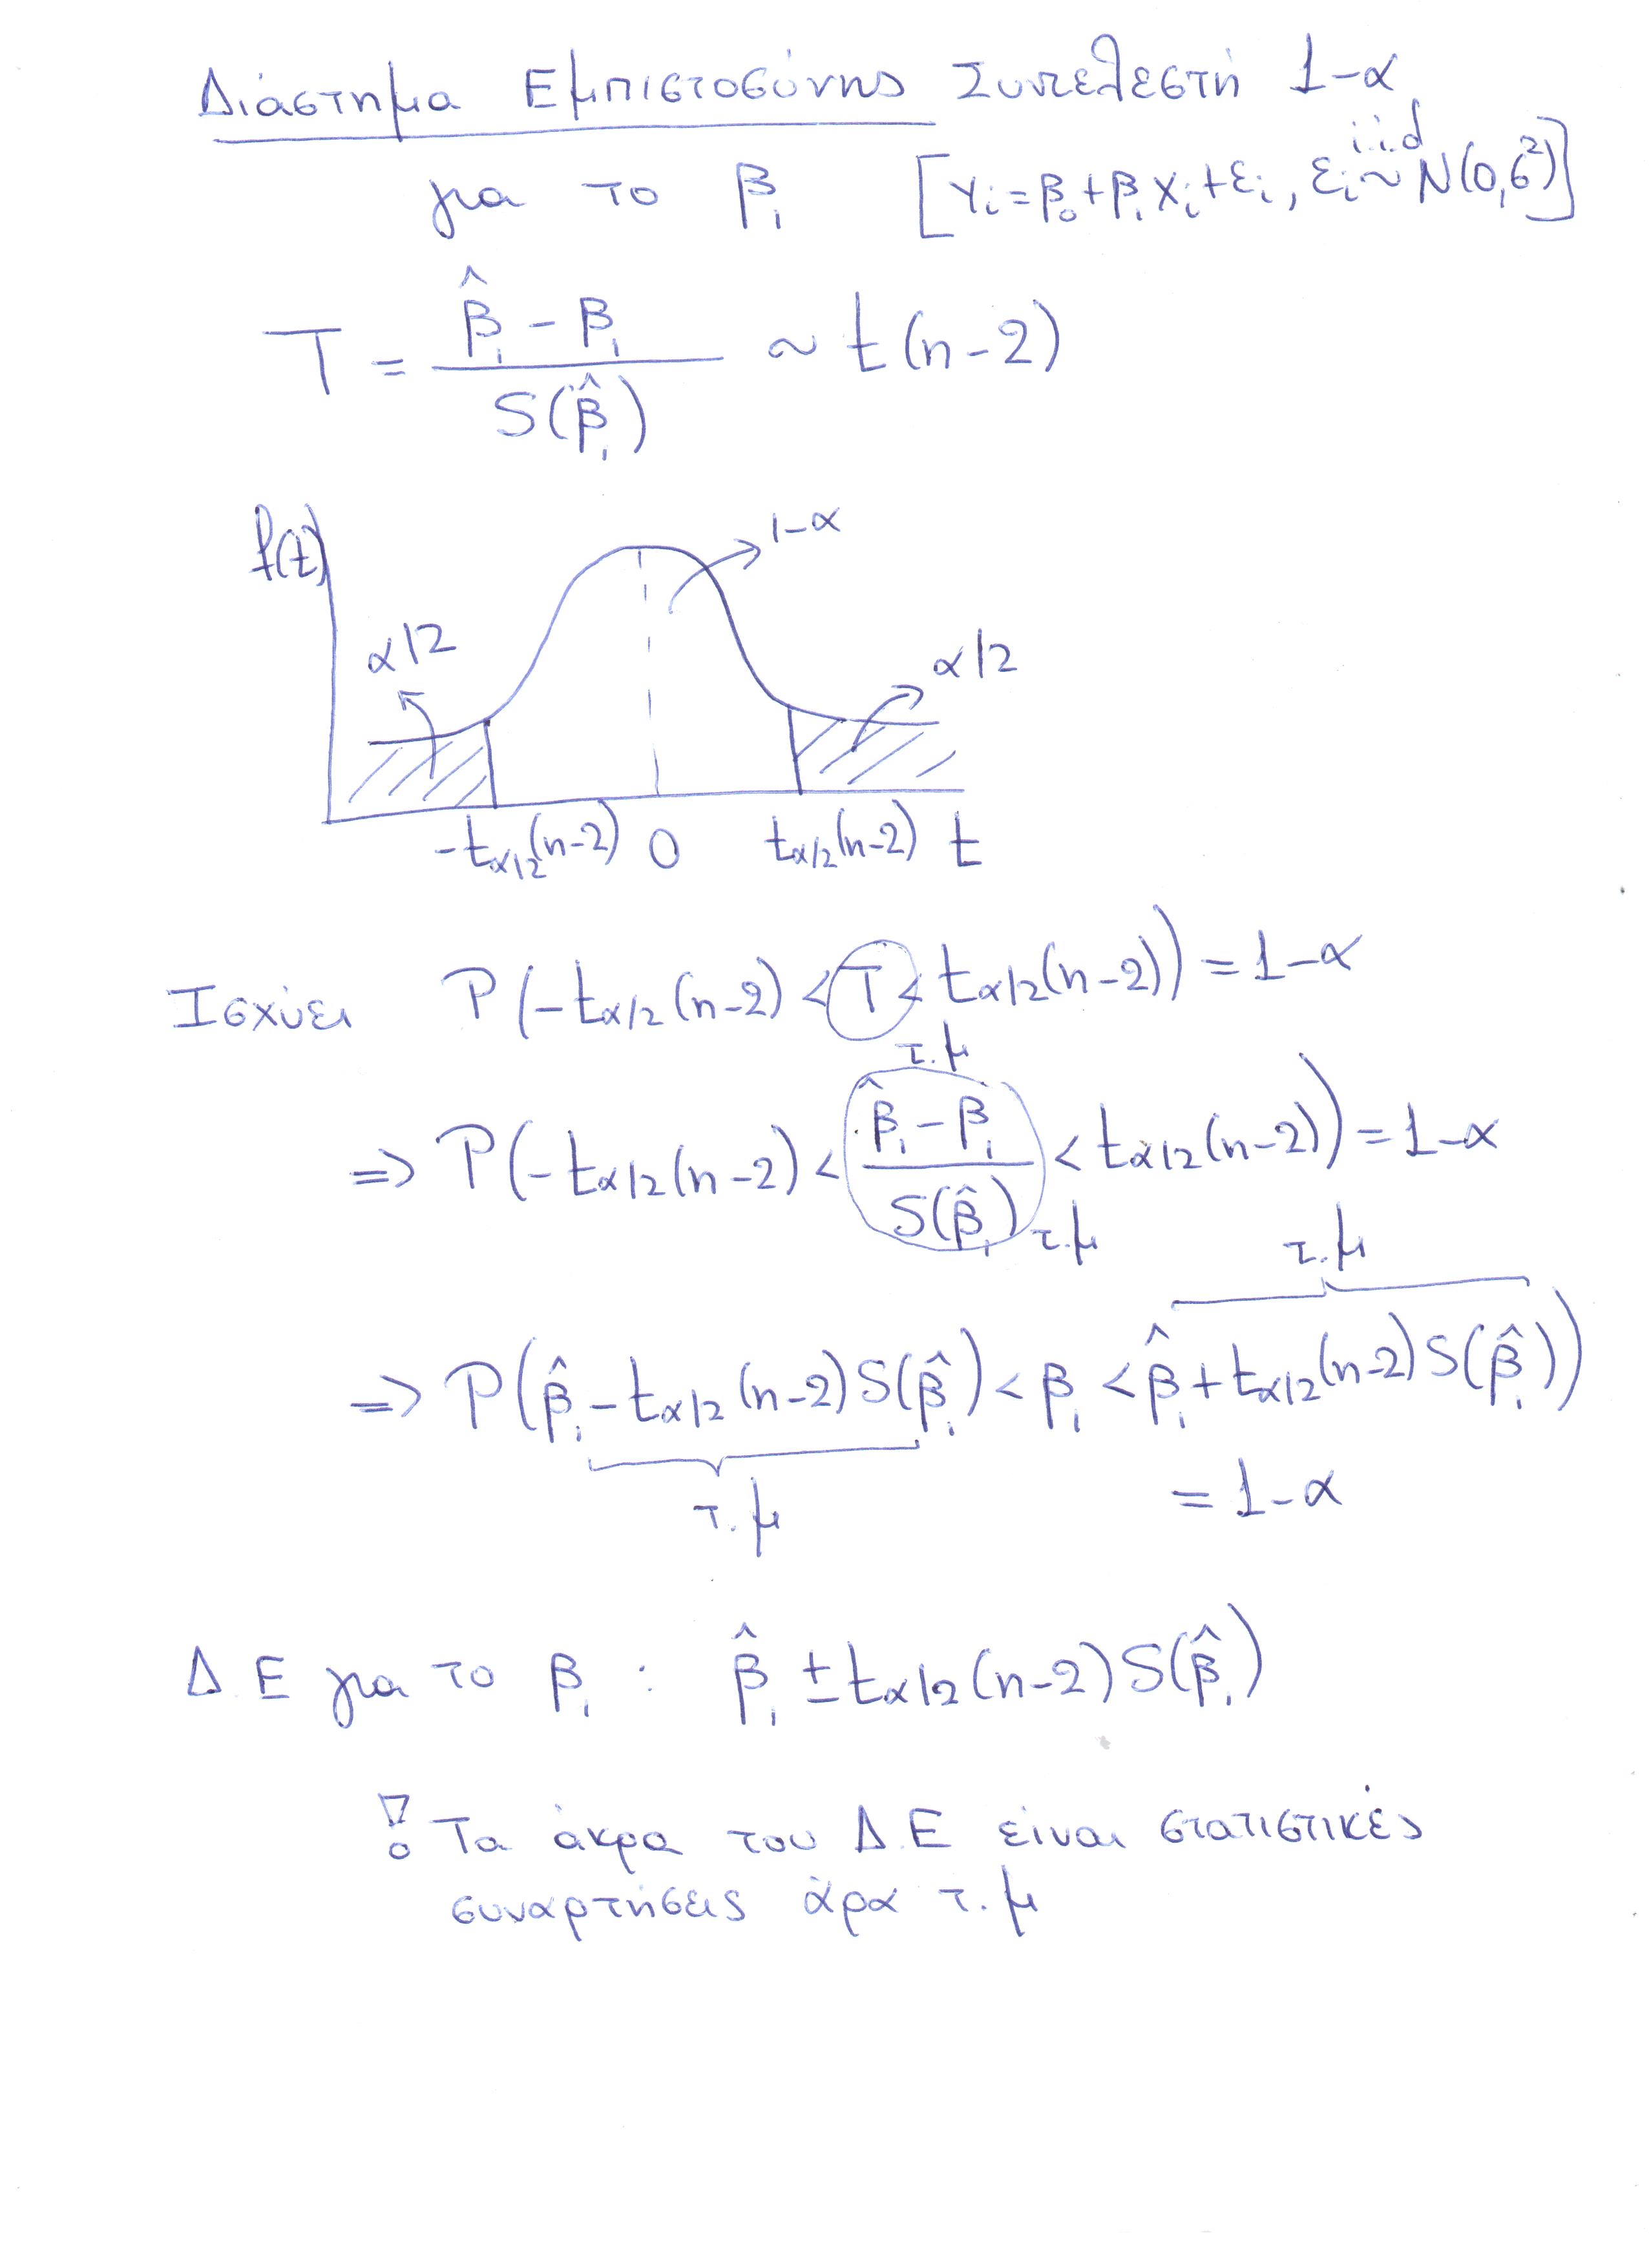 Διάστημα Εμπιστοσύνης Συντελεστή 1-α
για το β₁ [Yi = β₀ + β₁Xi + εi, εi i.i.d ~ N(0,σ²)]
T = (β̂₁ - β₁) / S(β̂₁) ~ t(n-2)
f(t)
1-α
α/2
α/2
-tα/2(n-2) 0 tα/2(n-2) t
Ισχύει P(-tα/2(n-2) < T < tα/2(n-2)) = 1-α
τ.μ
=> P(-tα/2(n-2) < (β̂₁ - β₁) / S(β̂₁) < tα/2(n-2)) = 1-α
τ.μ
τ.μ
=> P(β̂₁ - tα/2(n-2) S(β̂₁) < β₁ < β̂₁ + tα/2(n-2) S(β̂₁))
τ.μ
= 1-α
Δ.Ε για το β₁ : β̂₁ ± tα/2(n-2) S(β̂₁)
! Τα άκρα του Δ.Ε είναι στατιστικές
συναρτήσεις άρα τ.μ